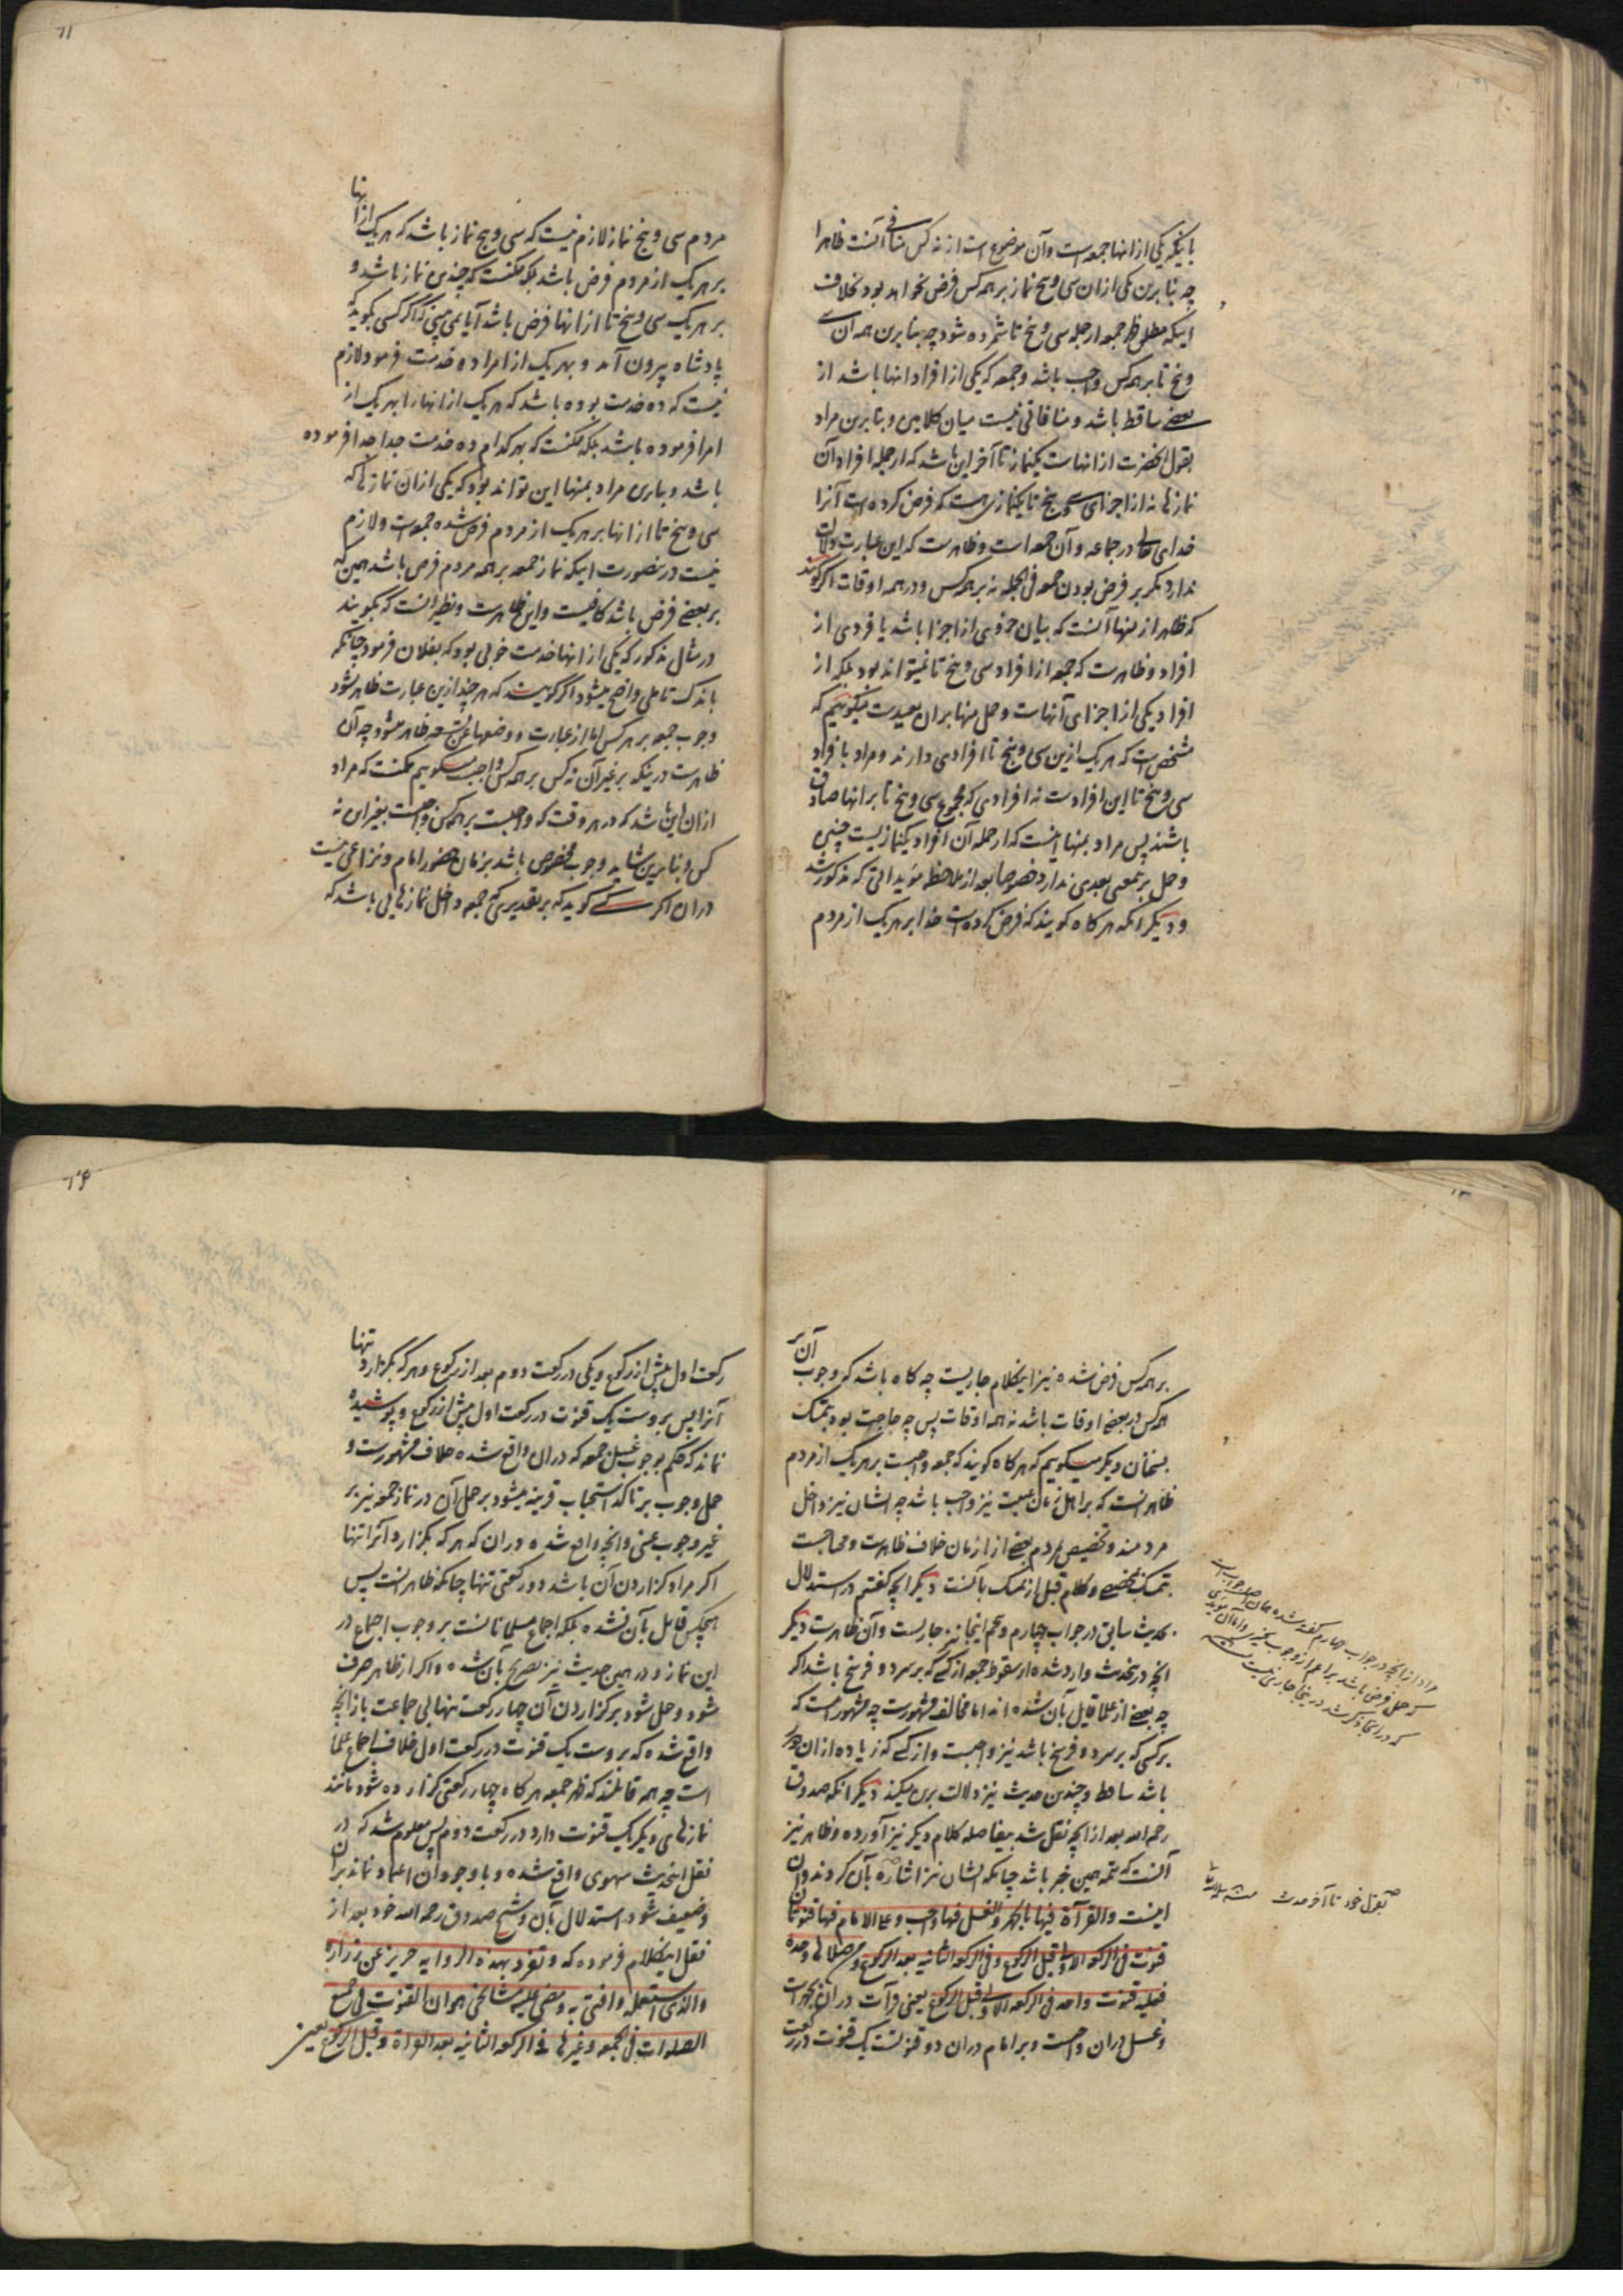 باینکه یکی از انها جمعه است وآن موضوع است از نه کس منافی آنست ظاهرا
چه بنابرین یکی ازان سی وپنج نماز بر همه کس فرض نخواهد بود بخلاف
اینکه مطلق ظهر جمعه از جمله سی وپنج تا شمرده شود چه بنابرین همه آن سی
وپنج تا بر همه کس واجب باشد وجمعه که یکی از افراد انها باشد از
بعضی ساقط باشد ومنافاتی نیست میان کلامین وبنابرین مراد
بقول انحضرت از انهاست یکنماز تا آخر این باشد که از جمله افراد آن
نمازها نه از اجزای سی وپنج تا یکنمازی هست که فرض کرده است آنرا
خدای تعالی در جماعه وآن جمعه است وظاهرست که این عبارت دلالت
ندارد مگر بر فرض بودن جمعه فی الجمله نه بر همه کس ودر همه اوقات اگر گویند
که ظاهر از منها آنست که بیان جزوی از اجزا باشد یا فردی از
افراد وظاهرست که جمعه از افراد سی وپنج تا نمیتواند بود بلکه از
افراد یکی از اجزای آنهاست وحمل منها بران بعیدست میگوییم که
مشخص است که هر یک ازین سی وپنج تا افرادی دارند ومراد بافراد
سی وپنج تا این افرادست نه افرادی که مجموع سی وپنج تا بر انها صادق
باشند پس مراد بمنها اینست که از جمله آن افراد یکنمازیست چنین
وحمل بر نمعنی بعدی ندارد خصوصا بعد از ملاحظه مؤیداتی که مذکور شد
ودیگر انکه هر کاه کویند که فرض کرده است خدا بر هر یک از مردم
۱۱
مردم سی وپنج نماز لازم نیست که سی وپنج نماز باشد که هر یک از انها
بر هر یک از مردم فرض باشد بلکه ممکنست که چندین نماز باشد و
بر هر یک سی وپنج تا از انها فرض باشد آیا نمی بینی که اگر کسی بگوید که
پادشاه بیرون آمد وبهر یک از امرا ده خدمت فرمود لازم
نیست که ده خدمت بوده باشد که هر یک از انها را بهر یک از
امرا فرموده باشد بلکه ممکنست که بهر کدام ده خدمت جدا جدا فرموده
باشد وباری مراد بمنها این تواند بود که یکی ازان نمازها که
سی وپنج تا از انها بر هر یک از مردم فرض شده جمعه است ولازم
نیست درنصورت اینکه نماز جمعه بر همه مردم فرض باشد همین که
بر بعضی فرض باشد کافیست واین ظاهرست ونظیر انست که بگویند
در مثال مذکور که یکی از انها خدمت خوبی بود که بفلان فرمود چنانکه
باندک تاملی واضح میشود اگر گویند که هر چند ازین عبارت ظاهر نشود
وجوب جمعه بر هر کس اما از عبارت ووضعها عن تسعه ظاهر میشود چه آن
ظاهرست درینکه بر غیر آن نه کس بر همه کس واجب میگوییم ممکنست که مراد
ازان این باشد که در هر وقت که واجبست بر همه کس واجبست بغیر این نه
کس وبنابرین شاید وجوب مخصوص باشد بزمان حضور امام ونزاعی نیست
دران اکر کسی کوید که بر تقدیری که جمعه داخل نمازهایی باشد که
بر همه کس فرض شده نیز اینکلام جاریست چه کاه باشد که وجوب آن بر
همه کس در بعضی اوقات باشد نه همه اوقات پس چه حاجت بود بتمسک
بسخنان دیگر میگوییم که هر کاه کویند که جمعه واجبست بر هر یک از مردم
ظاهر انست که بر اهل زمان غیبت نیز واجب باشد چه ایشان نیز داخل
مردمند وتخصیص مردم ببعضی از ازمان خلاف ظاهرست ومحتاجست
بتمسک بمخصصی وکلام قبل از تمسک بآنست دیگر انچه گفتیم در استدلال
بحدیث سابق در جواب چهارم وپنجم اینجا نیز جاریست وآن ظاهرست دیگر
انچه درنحدیث وارد شده از سقوط جمعه از کسی که بر سر دو فرسخ باشد اگر
چه بعضی از علما قایل بآن شده اند اما مخالف مشهورست چه مشهور است که
بر کسی که بر سر دو فرسخ باشد نیز واجبست واز کسی که زیاده ازان دور
باشد ساقط وچندین حدیث نیز دلالت برین میکند دیگر انکه صدوق
رحمه الله بعد از انچه نقل شد بیفاصله کلام دیگر نیز آورده وظاهر نیز
آنست که تتمه همین خبر باشد چنانکه ایشان نیز اشاره بآن کردند وآن
اینست والقرآة فیها بالجهر والغسل فیها واجب وعلی الامام فیها قنوتان
قنوت فی الرکعه الاولی قبل الرکوع وفی الرکعه الثانیه بعد الرکوع ومن صلاها وحده
فعلیه قنوت واحد فی الرکعه الاولی قبل الرکوع یعنی قرآت دران بجهرست
وغسل دران واجبست وبر امام دران دو قنوتست یک قنوت در رکعت
مراد از انچه در جواب چهارم گفته شده
که حمل فرض باشد بر اعم از وجوب تخییری
که در انجا ذکر شد در ینجا جاری نیست منه
بقول خود تا آخر حدیث منه
۱۲
رکعت اول پیش از رکوع ویکی در رکعت دوم بعد از رکوع وهر که بگزارد تنها
آنرا پس بروست یک قنوت در رکعت اول پیش از رکوع وپوشیده
نماند که حکم بوجوب غسل جمعه که دران واقع شده خلاف مشهورست و
حمل وجوب بر تاکد استحباب قرینه میشود بر حمل آن در نماز جمعه نیز بر
غیر وجوب عینی وانچه واقع شده دران که هر که بگزارد آنرا تنها
اکر مراد گزاردن آن باشد دو رکعتی تنها چنانکه ظاهر انست پس
هیچکس قایل بآن نشده بلکه اجماع مسلمانانست بر وجوب اجماع در
این نماز ودر همین حدیث نیز تصریح بآن شده واکر از ظاهر صرف
شود وحمل شود بر گزاردن آن چهار رکعت تنها بی جماعت باز انچه
واقع شده که بروست یک قنوت در رکعت اول خلاف اجماع علما
است چه همه قائلند که ظهر جمعه هر کاه چهار رکعتی گزارده شود مانند
نمازهای دیگر یک قنوت دارد در رکعت دوم پس معلوم شد که در
نقل اینحدیث سهوی واقع شده وباوجود آن اعتماد نماند بر آن
وضعیف شود استدلال بآن وشیخ صدوق رحمه الله خود بعد از
نقل اینکلام فرموده که وتفرد بهذه الروایه حریز عن زراره
والذی استعمله وافتی به ومضی علیه مشایخی هو ان القنوت فی جمیع
الصلوات فی الجمعه وغیرها فی الرکعه الثانیه بعد القراءة وقبل الرکوع یعنی